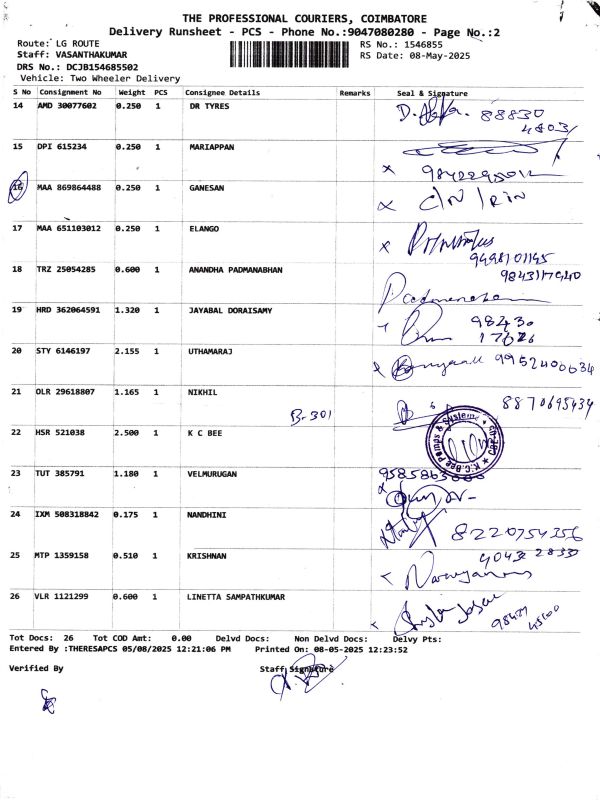 THE PROFESSIONAL COURIERS, COIMBATORE
Delivery Runsheet - PCS - Phone No.:9047080280 - Page No.:2
Route: LG ROUTE RS No.: 1546855
Staff: VASANTHAKUMAR RS Date: 08-May-2025
DRS No.: DCJB154685502
Vehicle: Two Wheeler Delivery
S No Consignment No Weight PCS Consignee Details Remarks Seal & Signature
14 AMD 30077602 0.250 1 DR TYRES 88830
15 DPI 615234 0.250 1 MARIAPPAN
16 MAA 869864488 0.250 1 GANESAN
17 MAA 651103012 0.250 1 ELANGO
18 TRZ 25054285 0.600 1 ANANDHA PADMANABHAN
19 HRD 362064591 1.320 1 JAYABAL DORAISAMY 98430
20 STY 6146197 2.155 1 UTHAMARAJ 9952400634
21 OLR 29618807 1.165 1 NIKHIL 8870695434
Br-301
22 HSR 521038 2.500 1 K C BEE
23 TUT 385791 1.180 1 VELMURUGAN
24 IXM 508318842 0.175 1 NANDHINI 8220754356
25 MTP 1359158 0.510 1 KRISHNAN
26 VLR 1121299 0.600 1 LINETTA SAMPATHKUMAR
Tot Docs: 26 Tot COD Amt: 0.00 Delvd Docs: Non Delvd Docs: Delvy Pts:
Entered By :THERESAPCS 05/08/2025 12:21:06 PM Printed On: 08-05-2025 12:23:52
Verified By Staff Signature